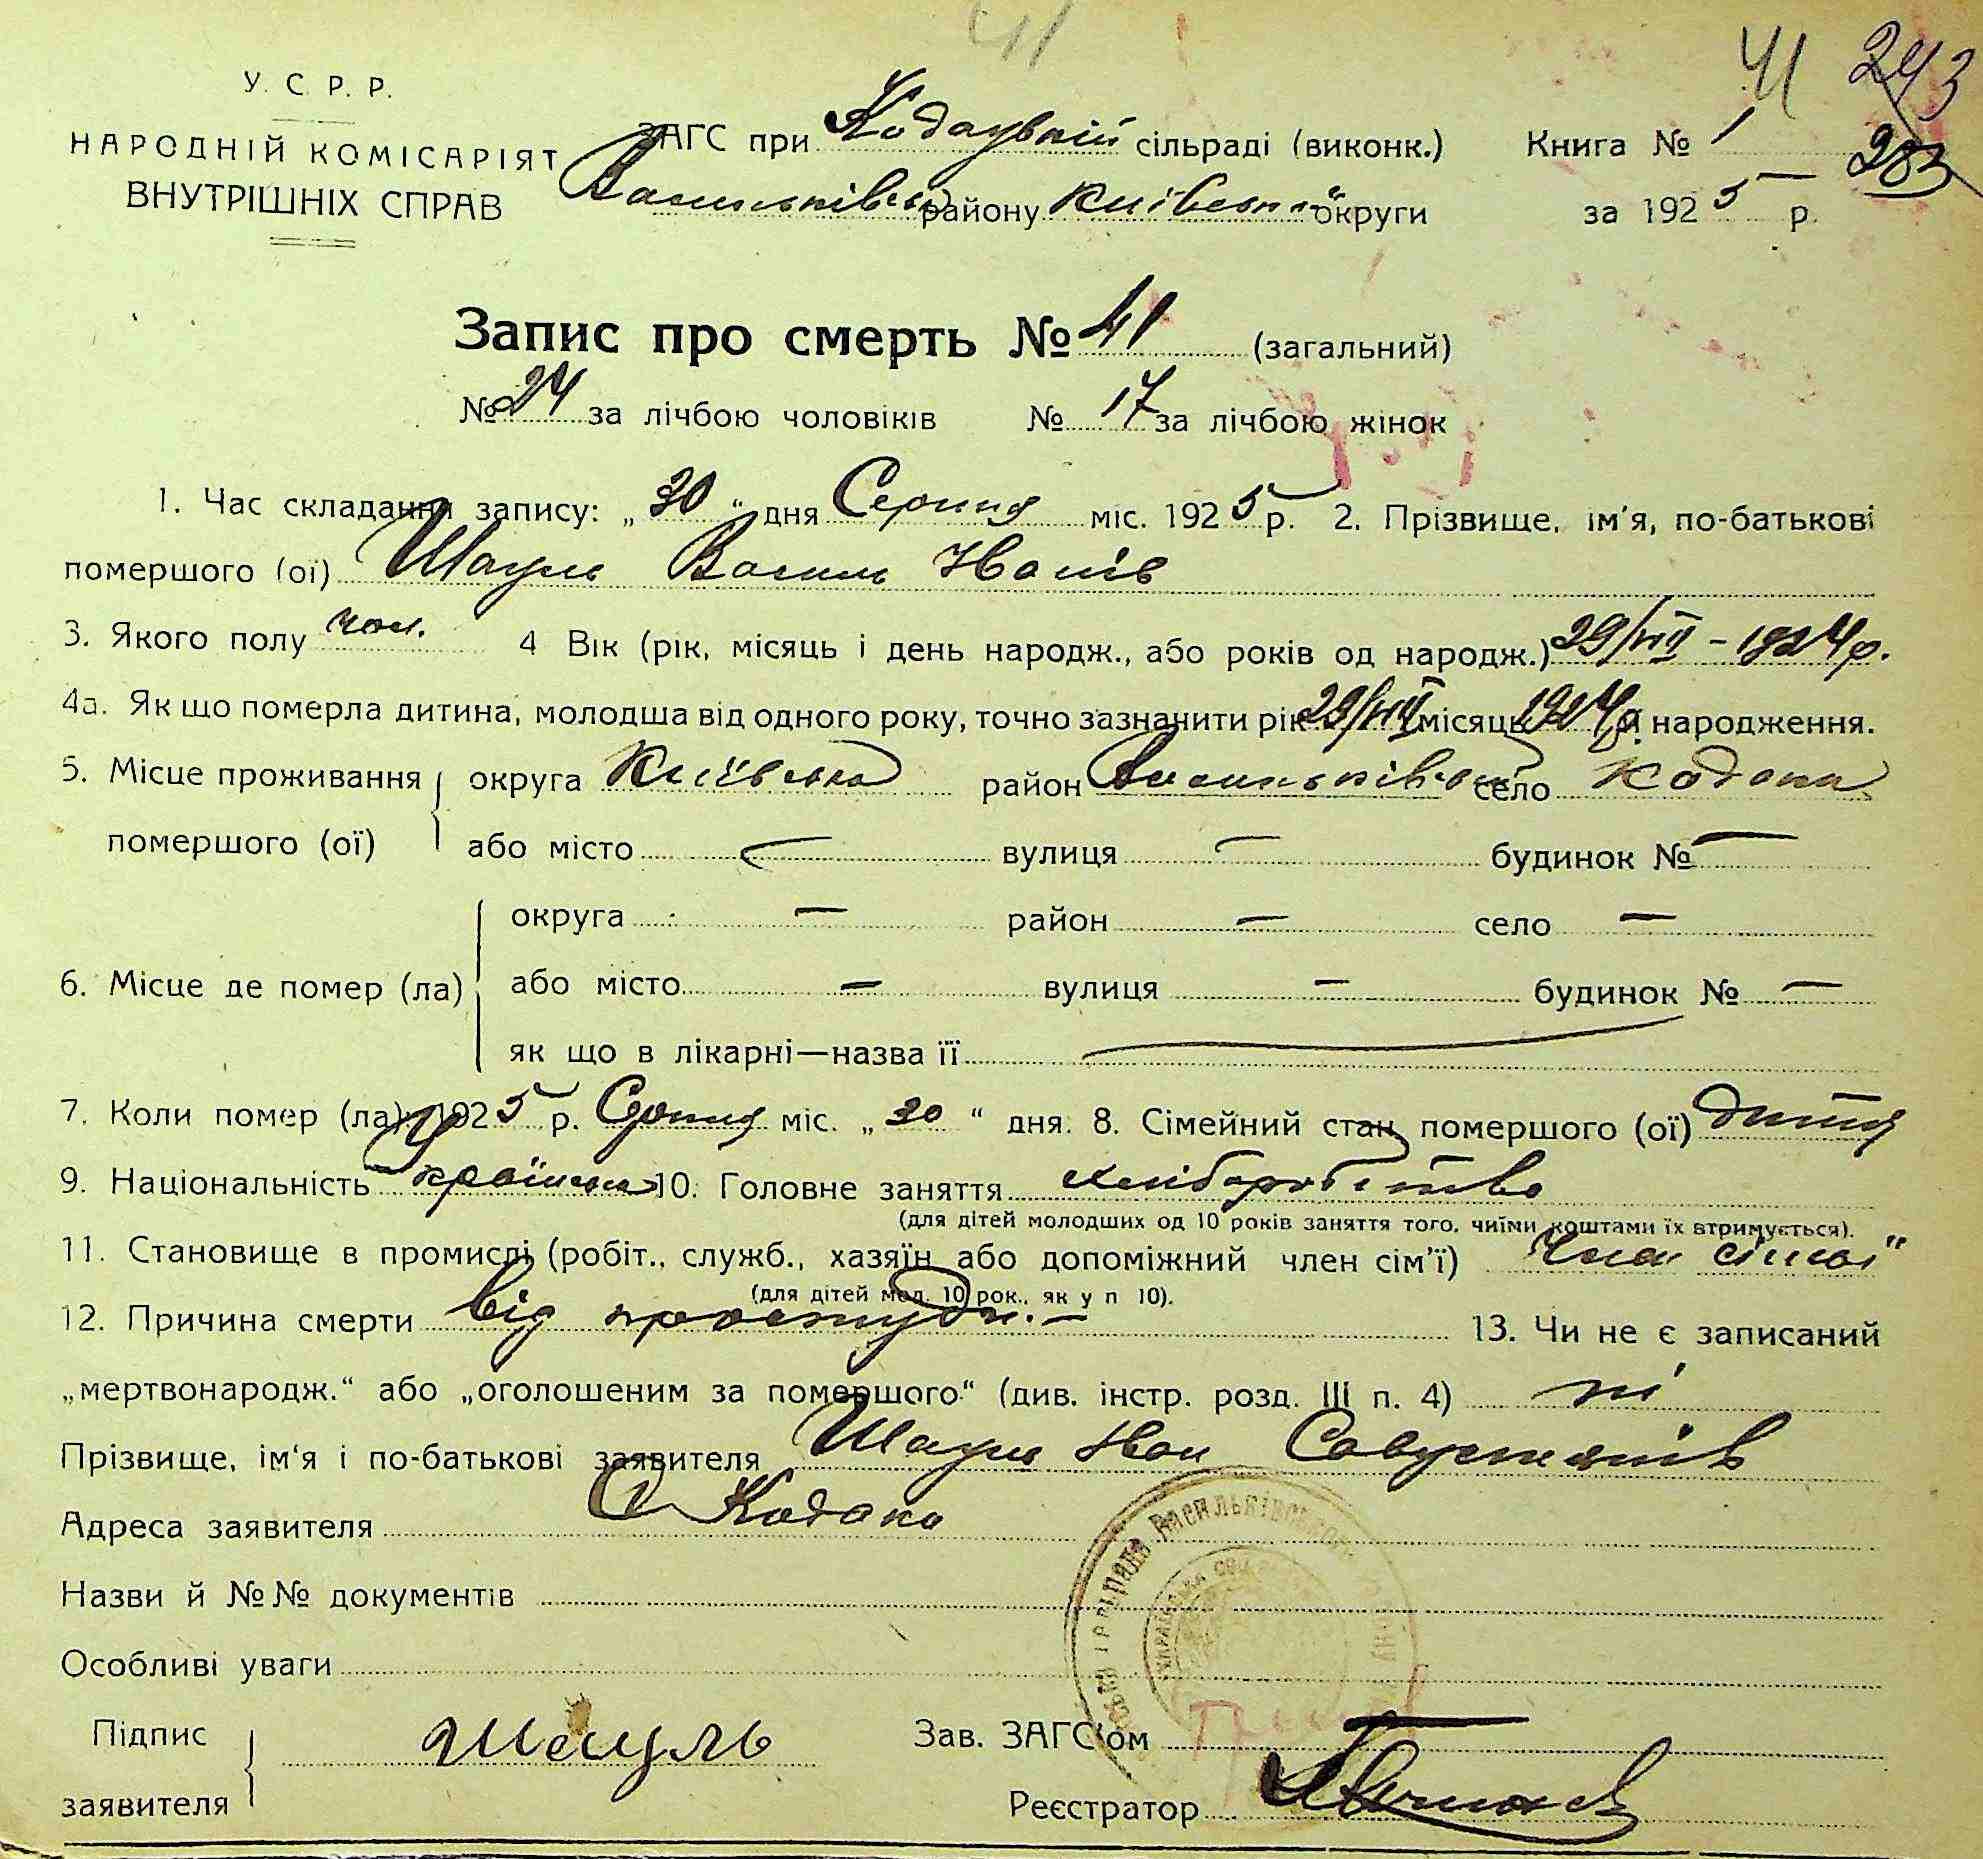 41
41 243
283
У. С. Р. Р.
НАРОДНІЙ КОМІСАРІЯТ
ВНУТРІШНІХ СПРАВ
ЗАГС при Кодацькій сільраді (виконк.)
Васильківськ району Київської округи
Книга № 1
за 1925 р.
Запис про смерть № 41 (загальний)
№ 24 за лічбою чоловіків № 17 за лічбою жінок
1. Час складання запису: „30“ дня Серпня міс. 1925 р. 2. Прізвище, ім'я, по-батькові
помершого (ої) Шауль Василь Іванів
3. Якого полу чол. 4 Вік (рік, місяць і день народж., або років од народж.) 29/VIII – 1924 р.
4а. Як що померла дитина, молодша від одного року, точно зазначити рік 29/VIII місяць 1924 р. народження.
5. Місце проживання округа Київська район Васильківськ село Кодаки
помершого (ої) або місто — вулиця — будинок № —
округа — район — село —
6. Місце де помер (ла) або місто — вулиця — будинок № —
як що в лікарні—назва її —
7. Коли помер (ла) 1925 р. Серпня міс. „30“ дня. 8. Сімейний стан помершого (ої) дитя
9. Національність Українець 10. Головне заняття хліборобство
(для дітей молодших од 10 років заняття того, чиїми коштами їх втримується).
11. Становище в промислі (робіт., служб., хазяїн або допоміжний член сім'ї) член сімьї
(для дітей мол. 10 рок., як у п 10).
12. Причина смерти від простуди. — 13. Чи не є записаний
„мертвонародж.“ або „оголошеним за помершого“ (див. інстр. розд. III п. 4) ні
Прізвище, ім'я і по-батькові заявителя Шауль Іван
Адреса заявителя С Кодаки
Назви й №№ документів
Особливі уваги
Підпис
заявителя Шауль
Зав. ЗАГС'ом
Реєстратор